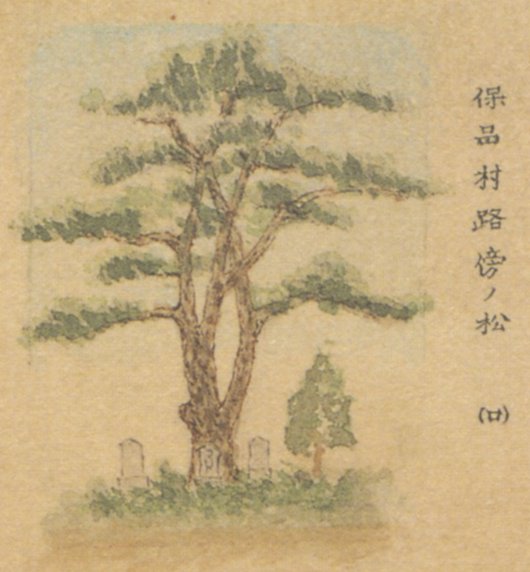 保品村路傍ノ松 (ロ)